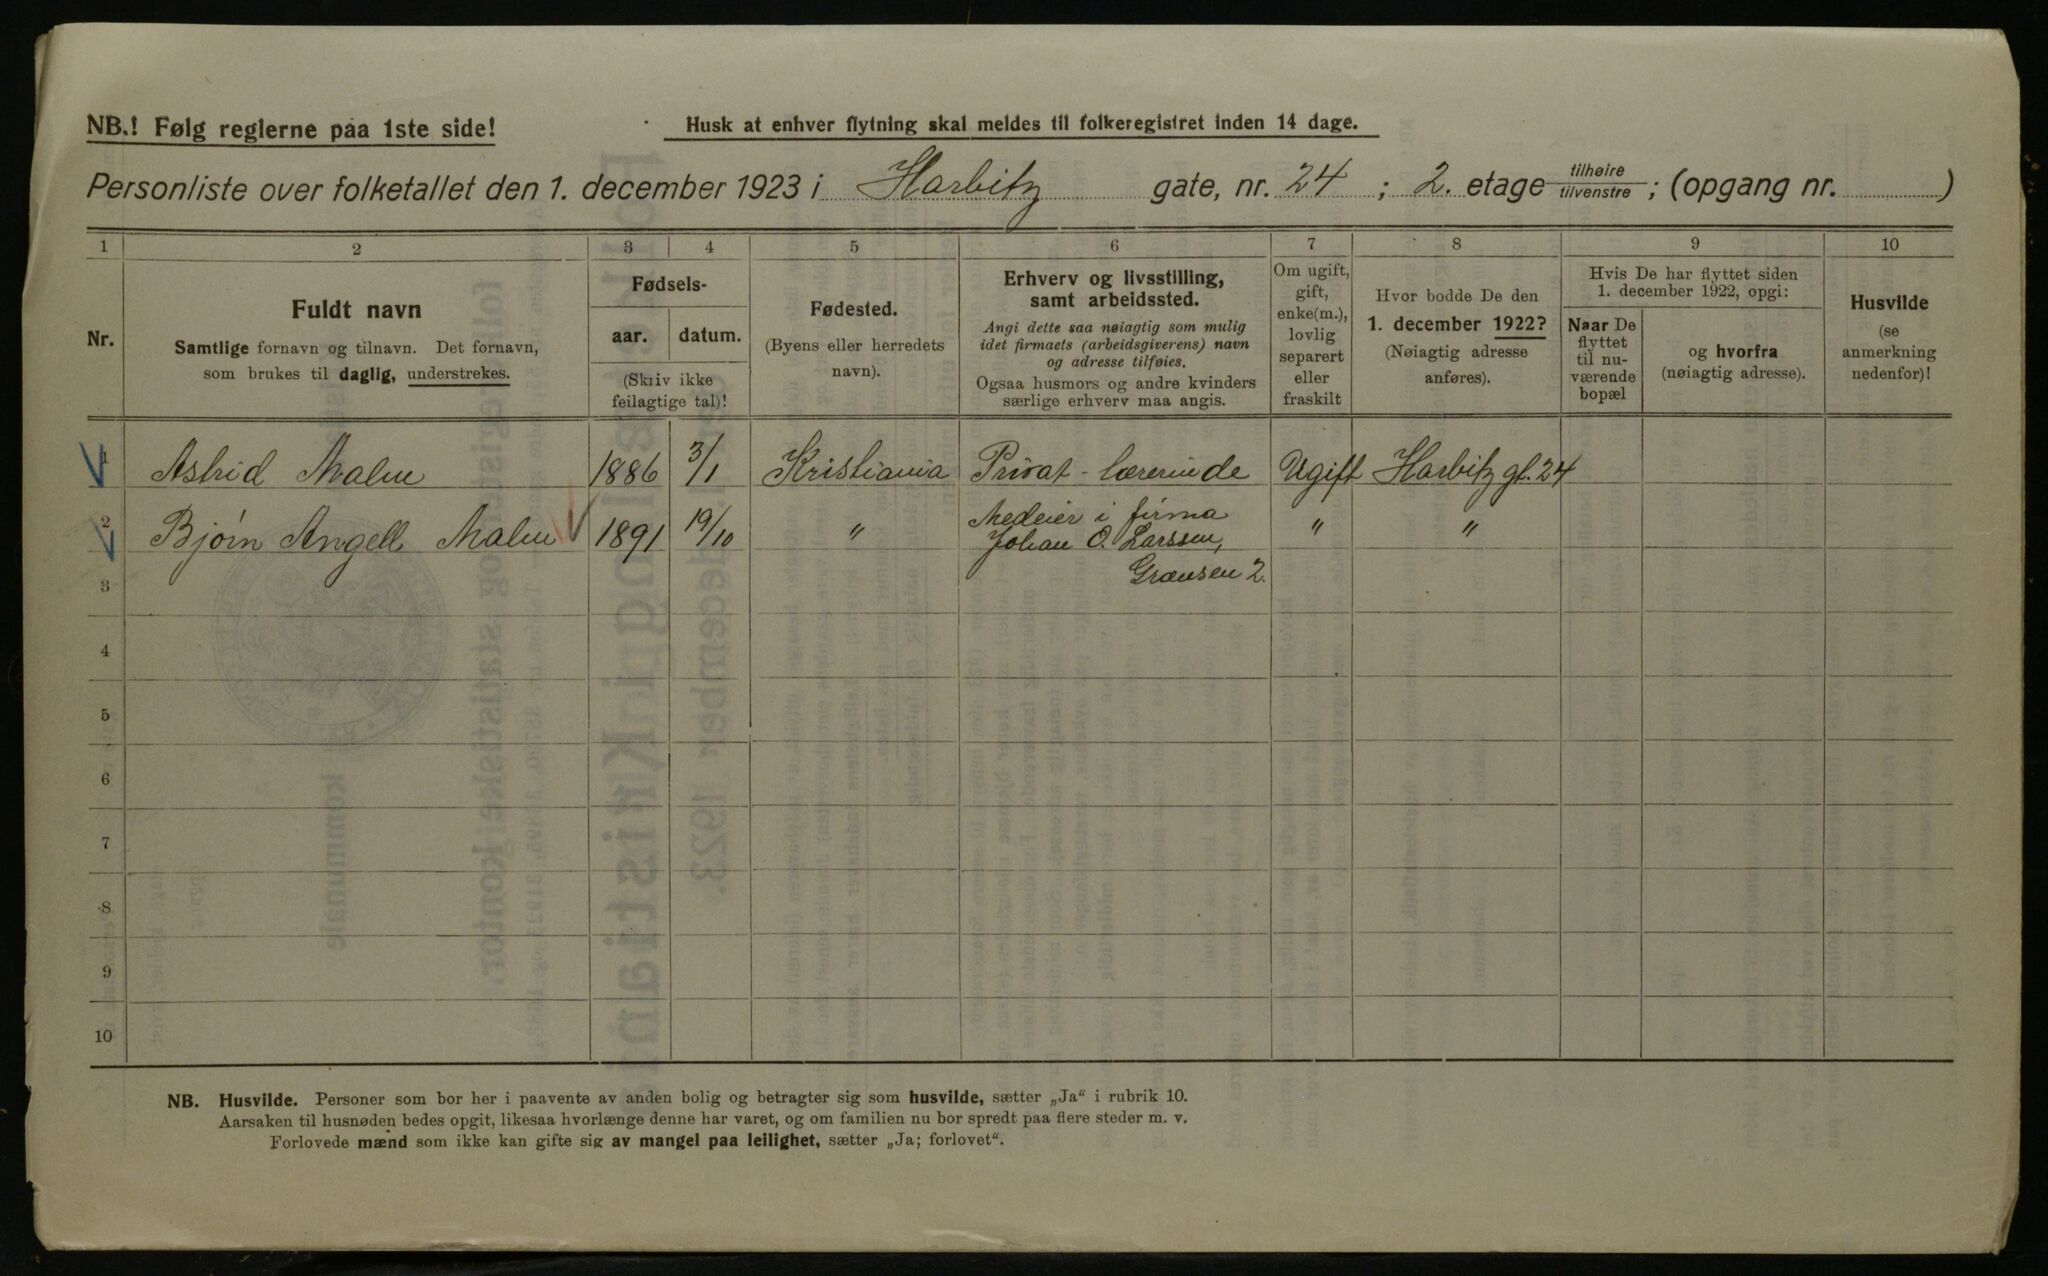 NB.! Følg reglerne paa 1ste side!
Husk at enhver flytning skal meldes til folkeregistret inden 14 dage.
Personliste over folketallet den 1. december 1923 i Harbitz gate, nr. 24 ; 2. etage tilhøire tilvenstre ; (opgang nr. )
1 2 3 4 5 6 7 8 9 10
Nr.
Fuldt navn
Samtlige fornavn og tilnavn. Det fornavn,
som brukes til daglig, understrekes.
Fødsels-
aar. datum.
(Skriv ikke
feilagtige tal)!
Fødested.
(Byens eller herredets
navn).
Erhverv og livsstilling,
samt arbeidssted.
Angi dette saa nøiagtig som mulig
idet firmaets (arbeidsgiverens) navn
og adresse tilføies.
Ogsaa husmors og andre kvinders
særlige erhverv maa angis.
Om ugift,
gift,
enke(m.),
lovlig
separert
eller
fraskilt
Hvor bodde De den
1. december 1922?
(Nøiagtig adresse
anføres).
Hvis De har flyttet siden
1. december 1922, opgi:
Naar De
flyttet
til nu-
værende
bopæl
og hvorfra
(nøiagtig adresse).
Husvilde
(se
anmerkning
nedenfor)!
1 Astrid Malm 1886 3/1 Kristiania Privat-lærerinde Ugift Harbitz gt. 24
2 Bjørn Angell Malm 1891 19/10 " Medeier i firma " "
Johan O. Larssen,
Grænsen 2.
3
4
5
6
7
8
9
10
NB. Husvilde. Personer som bor her i paavente av anden bolig og betragter sig som husvilde, sætter „Ja“ i rubrik 10.
Aarsaken til husnøden bedes opgit, likesaa hvorlænge denne har varet, og om familien nu bor spredt paa flere steder m. v.
Forlovede mænd som ikke kan gifte sig av mangel paa leilighet, sætter „Ja; forlovet“.